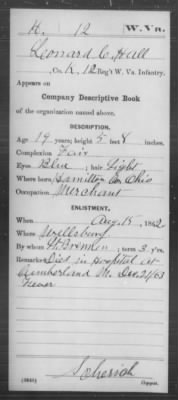 H. 12 W. Va.
Leonard C. Hall
Co. K, 12 Reg't W. Va. Infantry.
Appears on
Company Descriptive Book
of the organization named above.
DESCRIPTION.
Age 19 years; height 5 feet 8 inches.
Complexion Fair
Eyes Blue; hair Light
Where born Hamilton Co. Ohio
Occupation Merchant
ENLISTMENT.
When Aug. 15, 1862
Where Wellsburg
By whom; term 3 y'rs.
Remarks: Died in hospital at
Cumberland Md. Dec 24/63
Fever
Copyist.